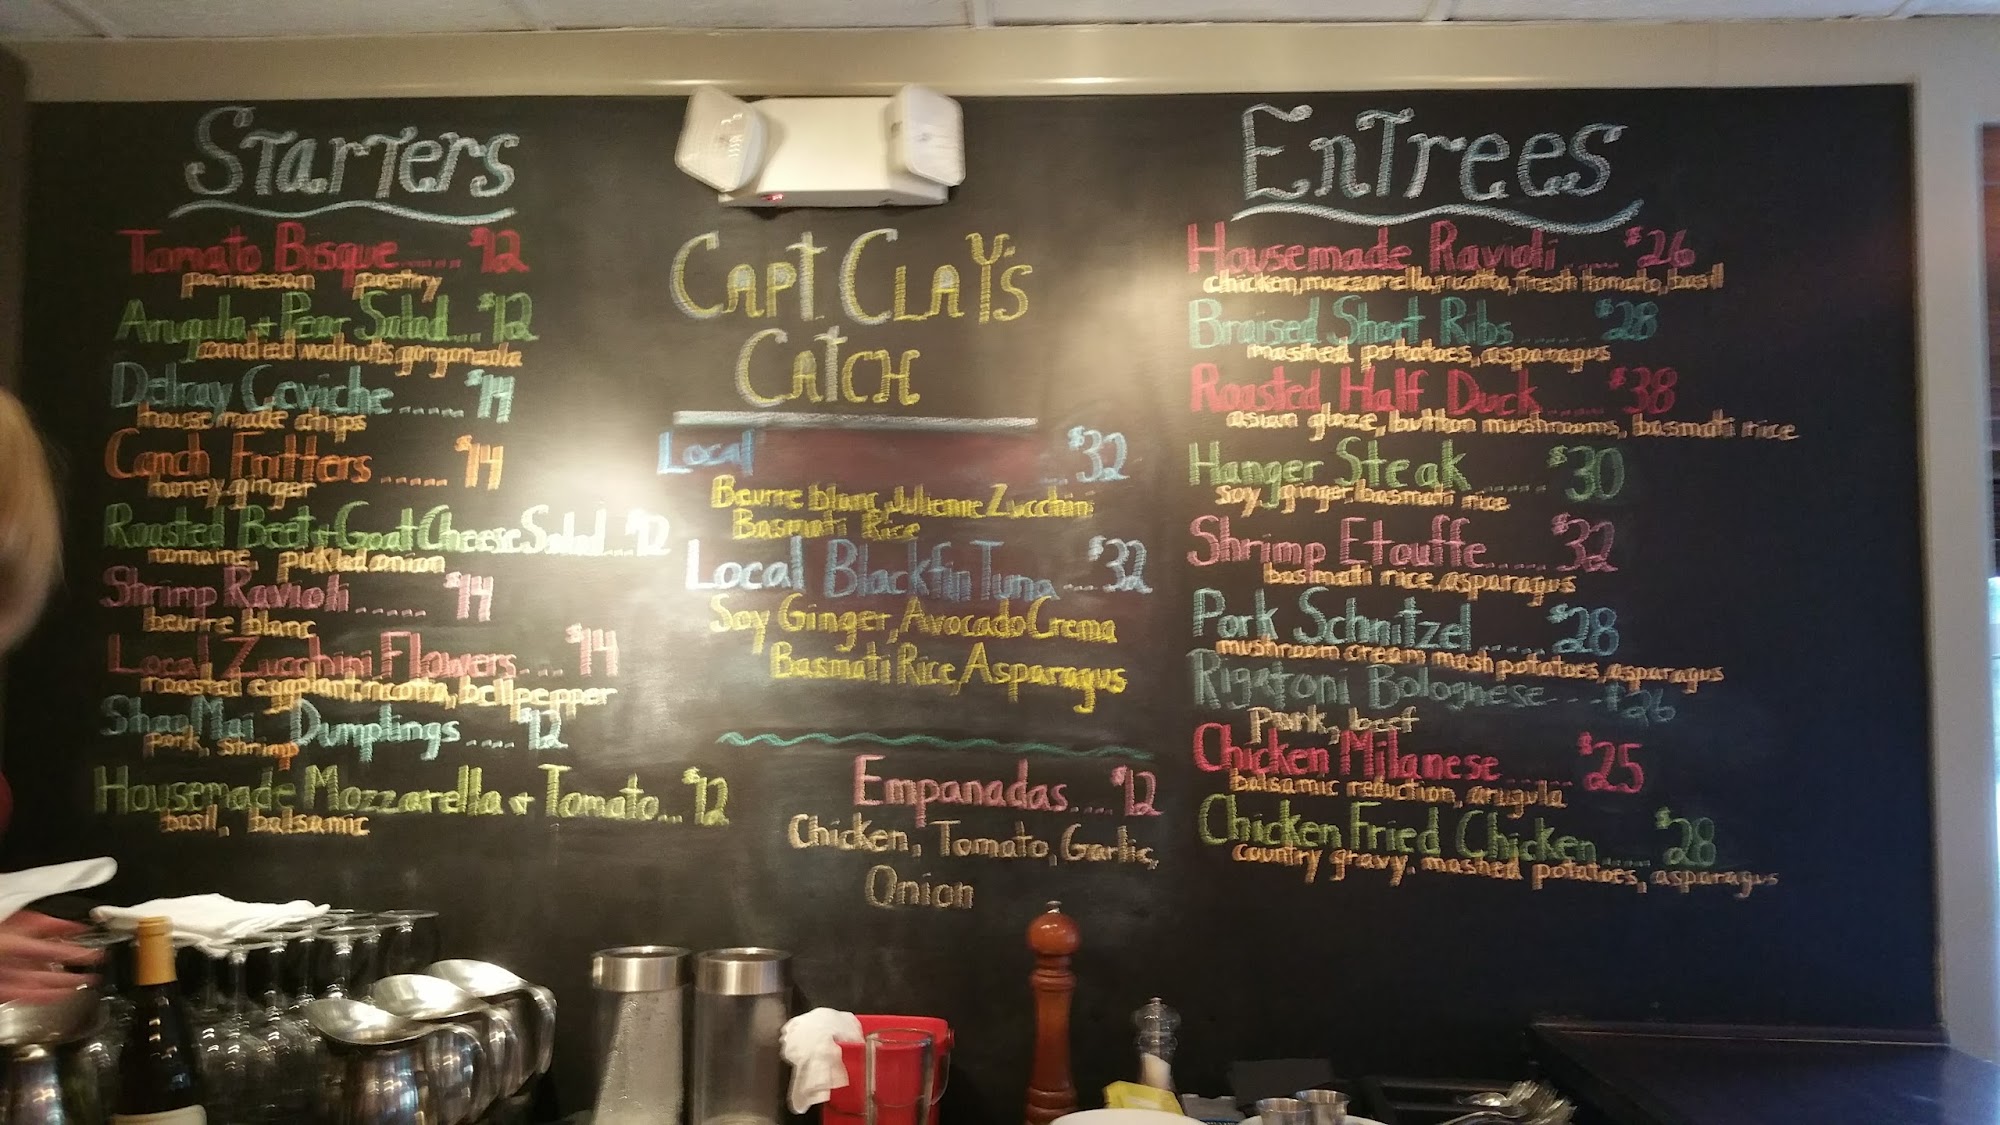 Starters
Tomato Bisque...... $12
parmesan pastry
Arugula + Pear Salad... $12
candied walnuts, gorgonzola
Delray Ceviche ...... $14
house made chips
Conch Fritters ..... $14
honey, ginger
Roasted Beet + Goat Cheese Salad... $12
romaine, pickled onion
Shrimp Ravioli ...... $14
beurre blanc
Local Zucchini Flowers.... $14
roasted eggplant, ricotta, bell pepper
Shao Mai Dumplings .... $12
pork, shrimp
Housemade Mozzarella + Tomato... $12
basil, balsamic
Capt. Clay's
Catch
Local $32
Beurre blanc, Julienne Zucchini
Basmati Rice
Local Blackfin Tuna... $32
Soy Ginger, Avocado Crema
Basmati Rice, Asparagus
Empanadas.... $12
Chicken, Tomato, Garlic,
Onion
Entrees
Housemade Ravioli ..... $26
chicken, mozzarella, ricotta, fresh tomato, basil
Braised Short Ribs ...... $28
mashed potatoes, asparagus
Roasted Half Duck ...... $38
asian glaze, button mushrooms, basmati rice
Hanger Steak ...... $30
soy, ginger, basmati rice
Shrimp Etouffe..... $32
basmati rice, asparagus
Pork Schnitzel ...... $28
mushroom cream mash potatoes, asparagus
Rigatoni Bolognese --- $26
pork, beef
Chicken Milanese ...... $25
balsamic reduction, arugula
Chicken Fried Chicken..... $28
country gravy, mashed potatoes, asparagus